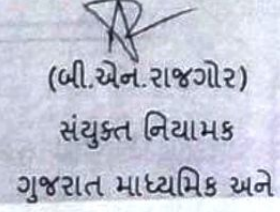 (બી.એન.રાજગોર)
સંયુક્ત નિયામક
ગુજરાત માધ્યમિક અને